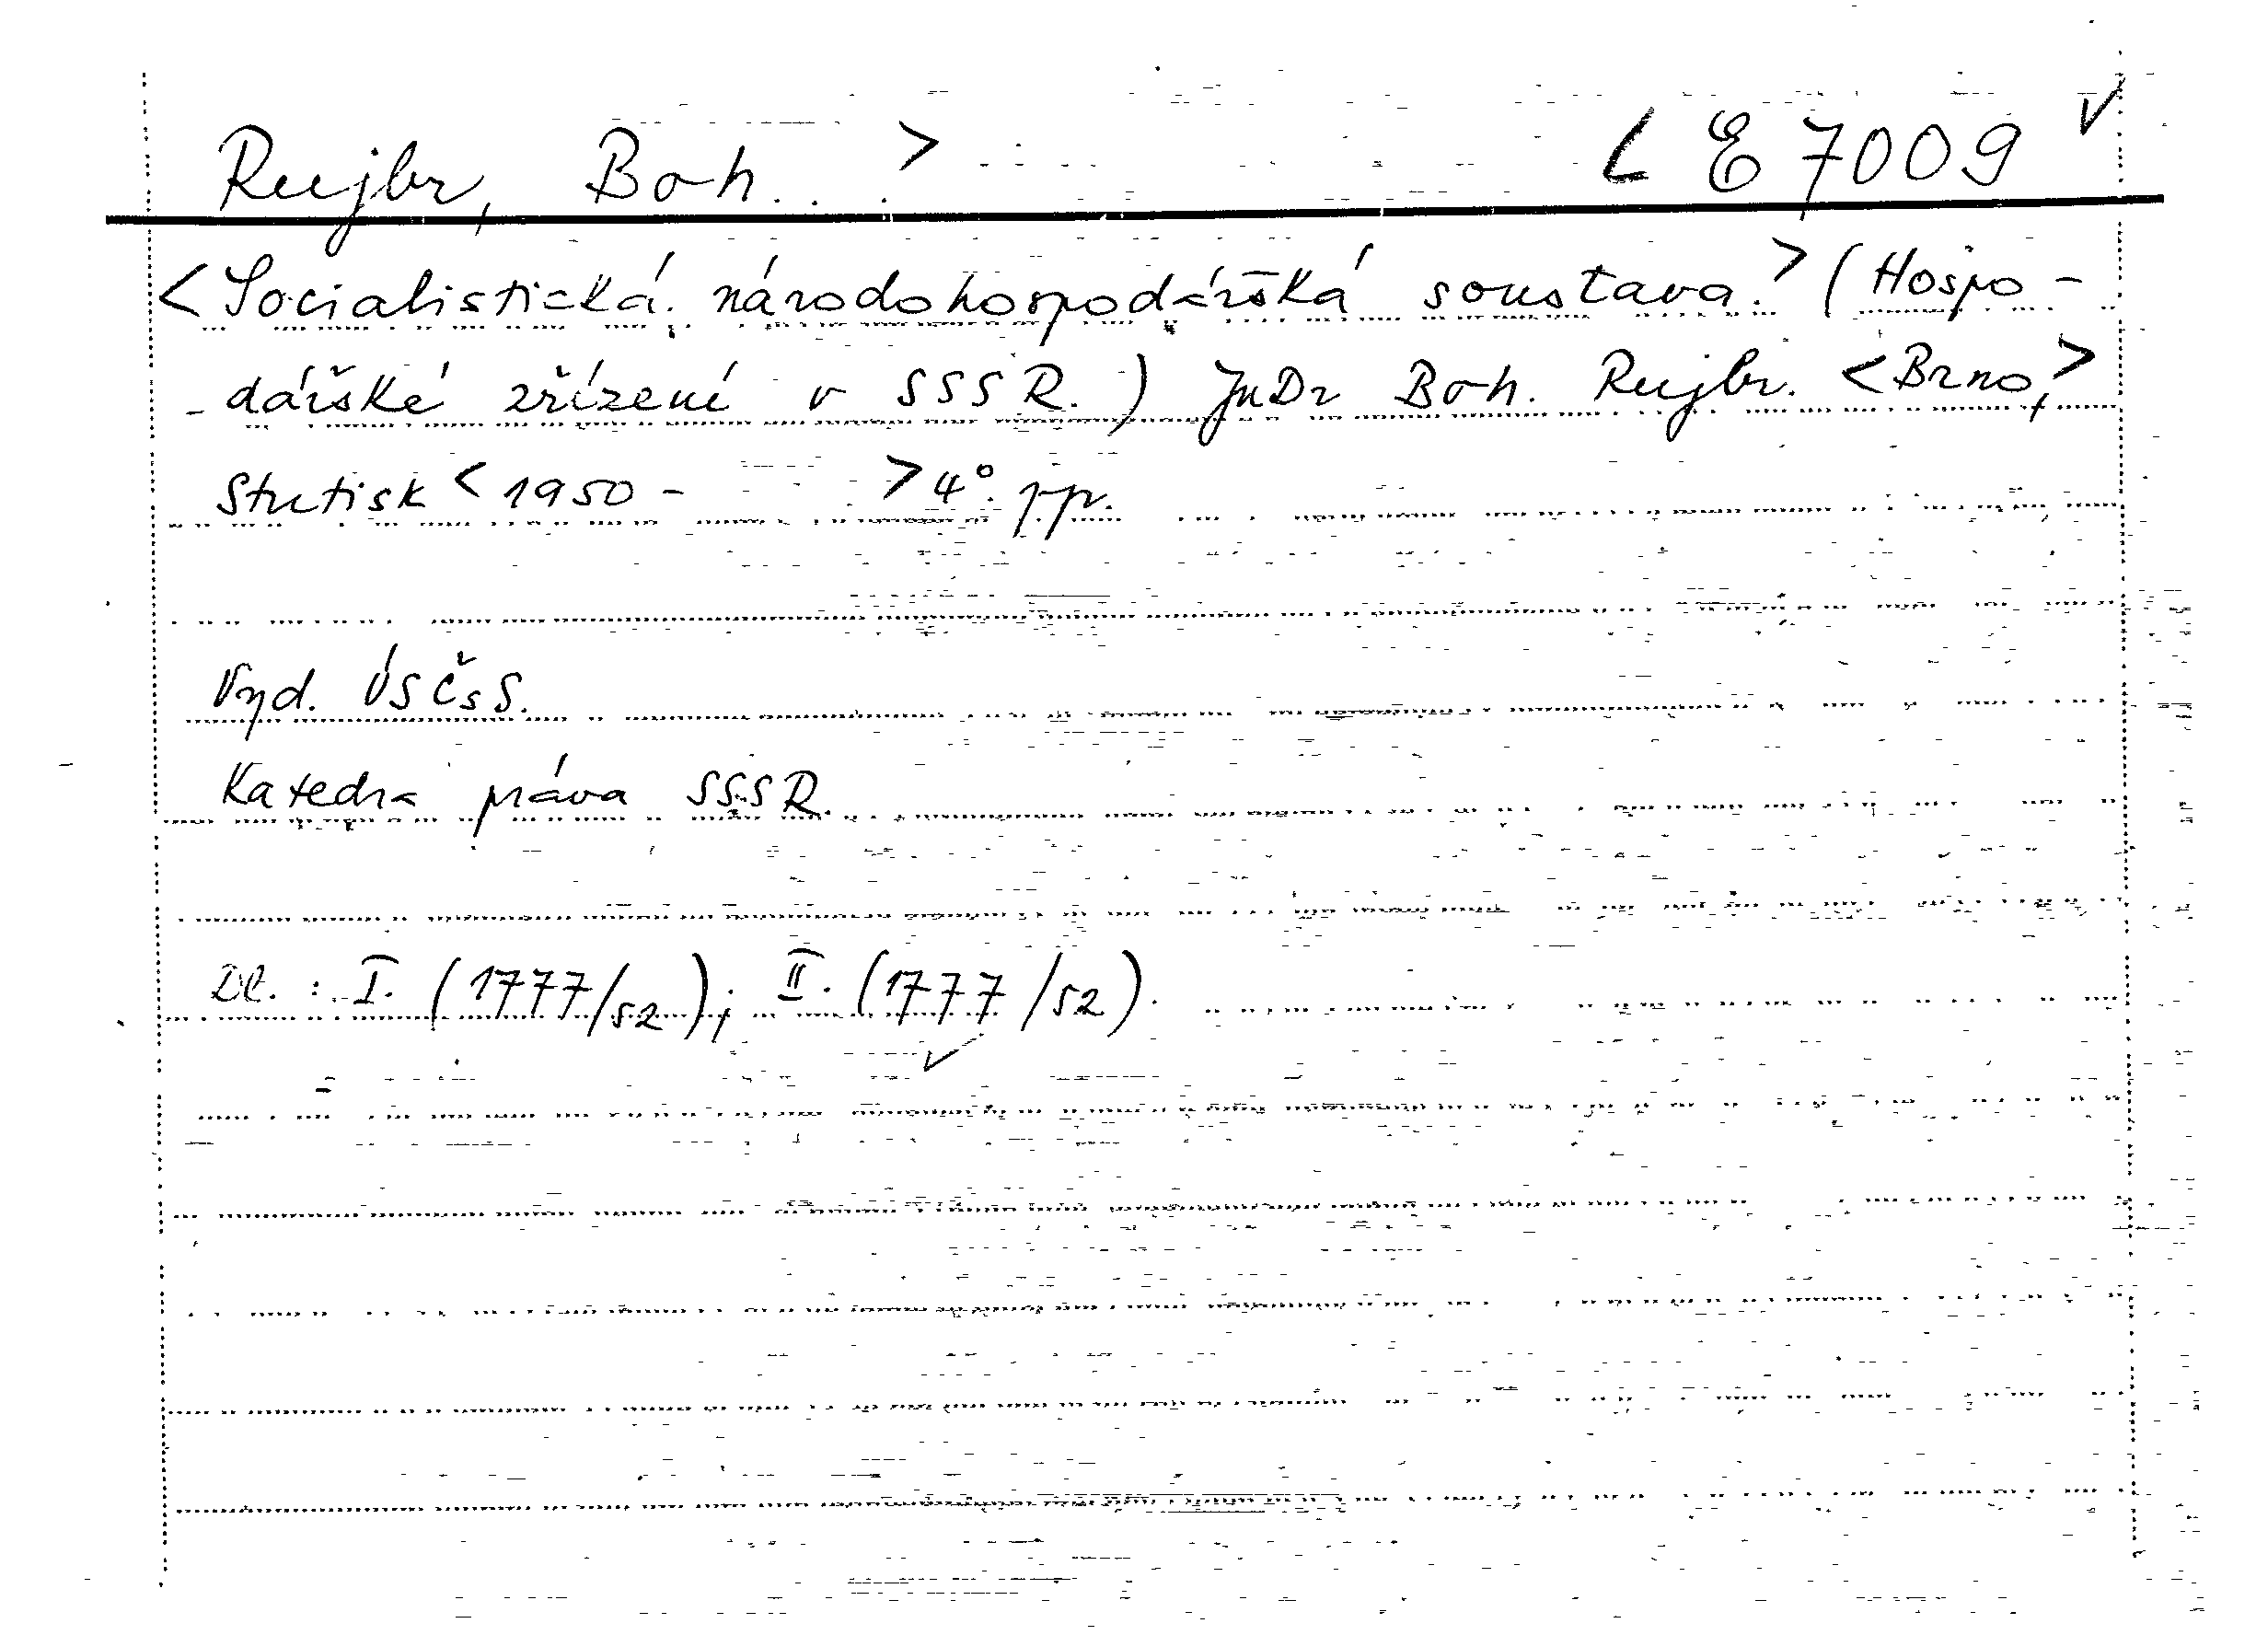 Rujbr, Boh. > < E 7009 ✓
< Socialistická národohospodářská soustava. > (Hospo-
- dářské zřízení v SSSR.) JuDr Boh. Rujbr. < Brno, >
Stutisk < 1950 - > 4° p.p.
Vyd. ÚSČsS.
Katedra práva SSSR.
Dl. : I. (1777/52); II. (1777/52).
✓